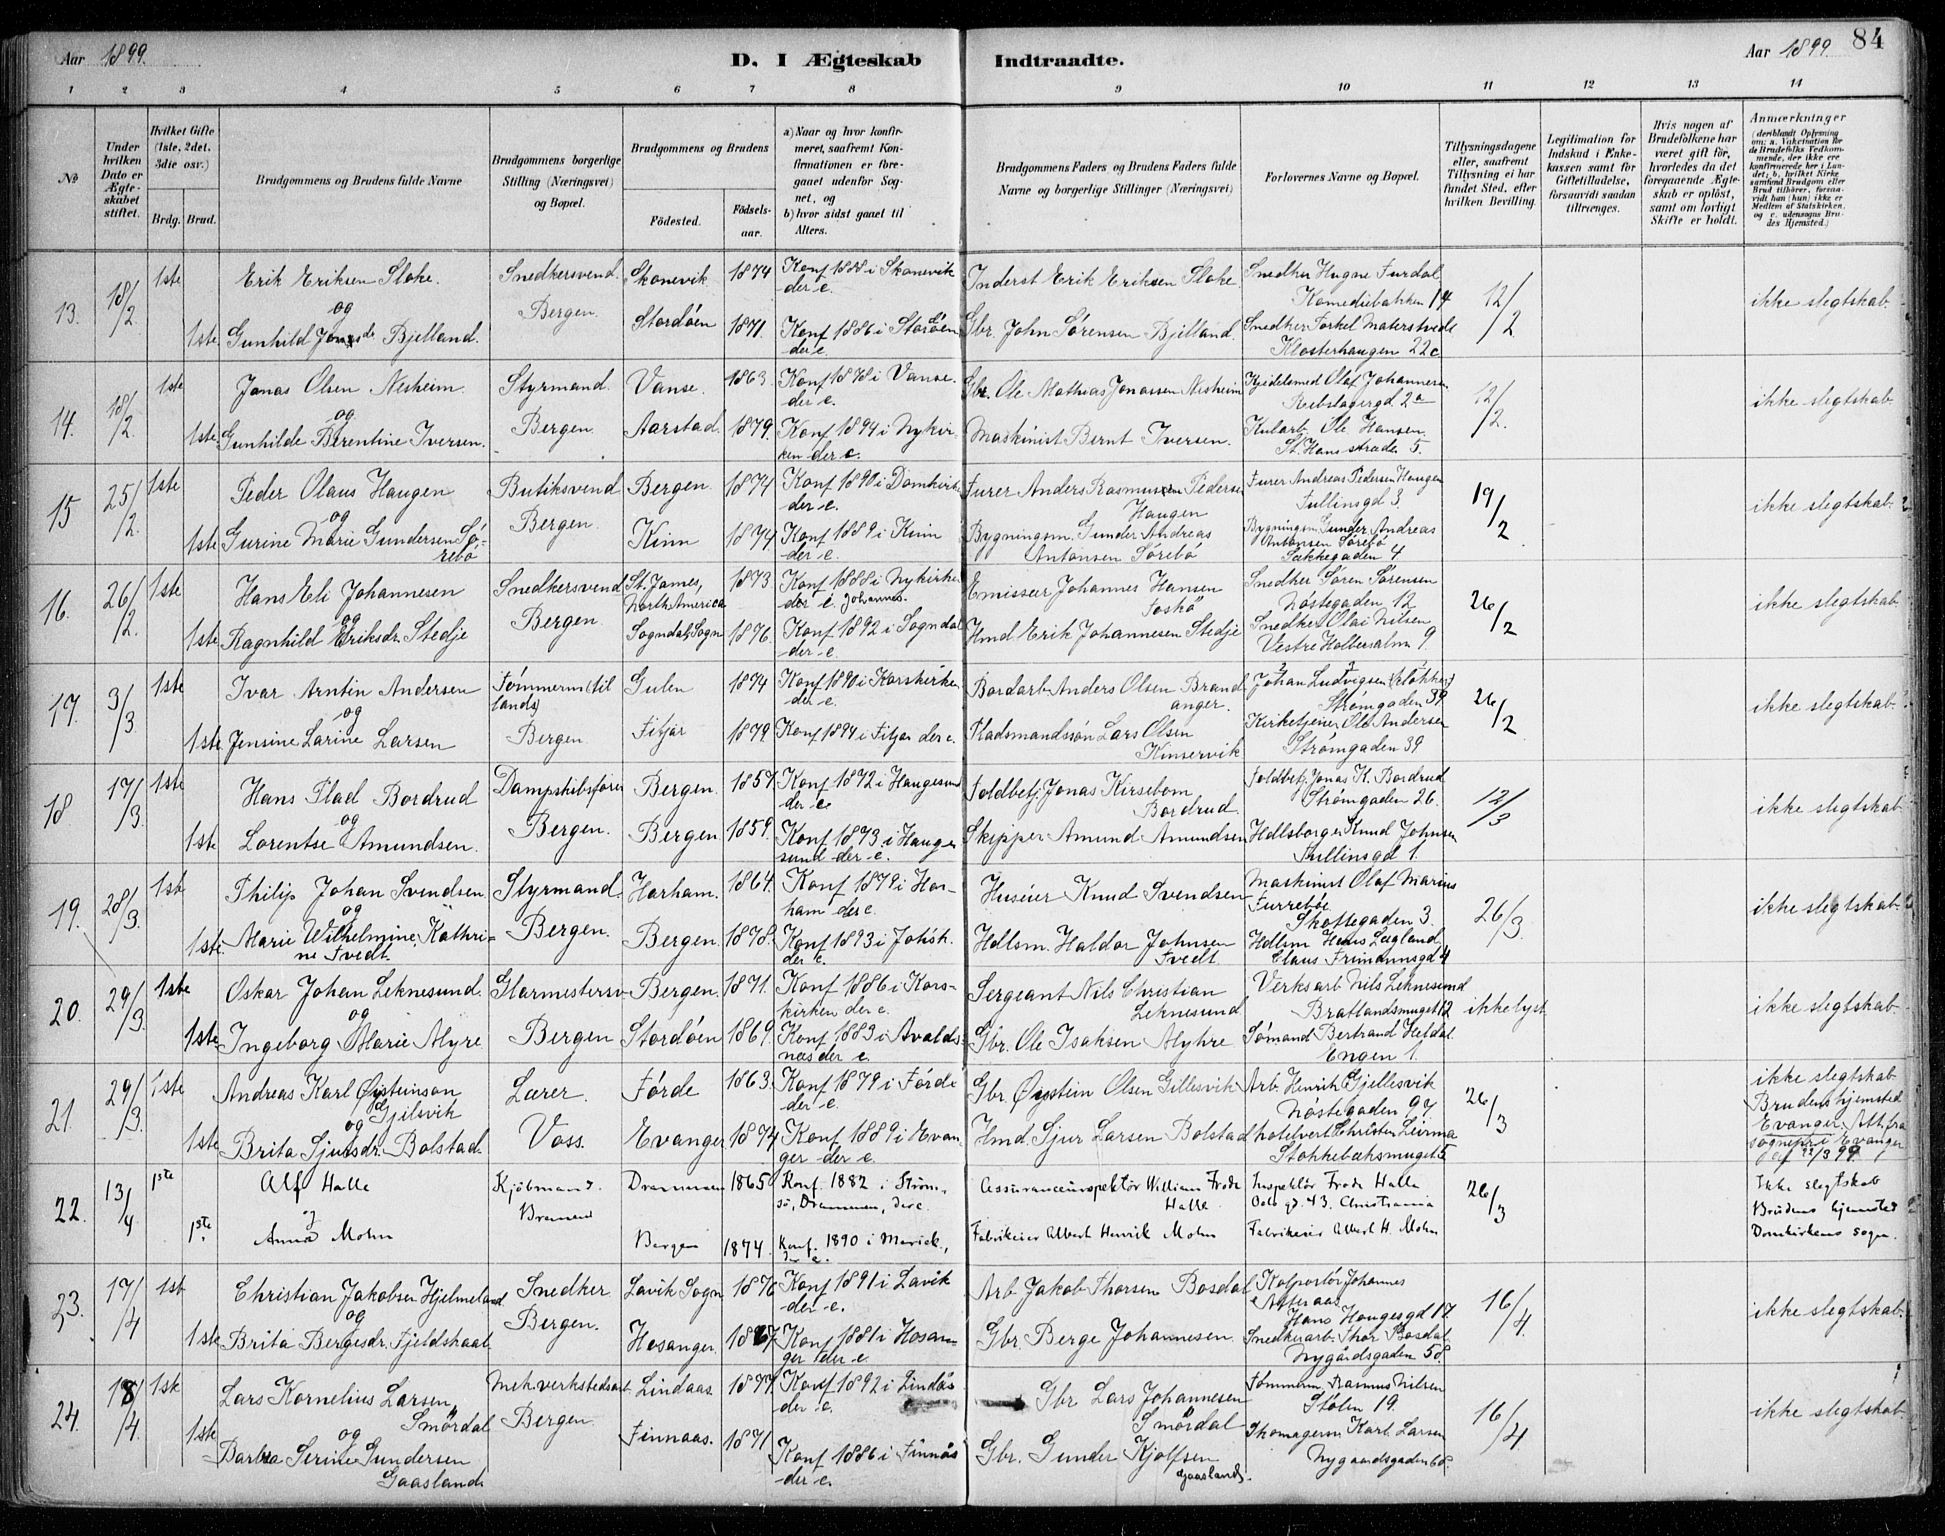 Aar 1899.
D. I Ægteskab Indtraadte.
Aar 1899. 84
1 2 3 4 5 6 7 8 9 10 11 12 13 14
№
Under hvilken Dato er Ægteskabet stiftet.
Hvilket Gifte (1ste, 2det, 3die osv.)
Brdg. Brud.
Brudgommens og Brudens fulde Navne
Brudgommens borgerlige Stilling (Næringsvei) og Bopæl.
Brudgommens og Brudens
Fødested. Fødselsaar.
a) Naar og hvor konfirmeret, saafremt Konfirmationen er foregaaet udenfor Sognet, og
b) hvor sidst gaaet til Alters.
Brudgommens Faders og Brudens Faders fulde Navne og borgerlige Stillinger (Næringsvei)
Forlovernes Navne og Bopæl.
Tillysningsdagene eller, saafremt Tillysning ei har fundet Sted, efter hvilken Bevilling.
Legitimation for Indskud i Enkekassen samt for Giftetilladelse, forsaavidt saadan tiltrænges.
Hvis nogen af Brudefolkene har været gift før, hvorledes da det foregaaende Ægteskab er opløst, samt om lovligt Skifte er holdt.
Anmærkninger (deriblandt Oplysning om: a. Vakcination for de Brudefolks Vedkommende, der ikke ere konfirmerede her i Landet; b. hvilket Kirkesamfund Brudgom eller Brud tilhører, forsaavidt han (hun) ikke er Medlem af Statskirken, og c. udensogns Brudes Hjemsted.)
13. 18/2. 1ste Erik Eriksen Sloke. Snedkersvend Skonevik 1874 Konf 1888 i Skonevik der e. Inderst Erik Eriksen Sloke Snedker Hugne Furdal Komediebakken 14 12/2 ikke slegtskab.
og Bergen.
1ste Gunhild Jonsdr. Bjelland. Stordøen 1871. Konf 1886 i Stordøen der e. Gbr. John Sørensen Bjelland. Snedker Torkel Matersvede Klosterhaugen 22c
14. 18/2. 1ste Jonas Olsen Nesheim. Styrmand. Vanse. 1863. Konf 1878 i Vanse. der e. Gbr. Ole Mathias Jonassen Nesheim Kjedelsmed Olaf Johannesen Rebslagergd 2a 12/2. ikke slegtskab.
og Bergen.
1ste Gunhilde Berentine Iversen. Aarstad. 1879. Konf 1894 i Nykirken der e. Maskinist Bernt Iversen. Kularb. Ole Hansen St. Hans stræde 5.
15 25/2. 1ste Peder Olaus Haugen Butiksvend Bergen. 1874 Konf 1890 i Domkirk der e. Furer Anders Rasmussen Pedersen Haugen Furer Andreas Pedersen Haugen Tullinsgd 3 19/2 ikke slegtskab.
og Bergen.
1ste Gurine Marie Gundersen Sørebø Kinn 1874 Konf 1889 i Kinn der e. Bygningsm. Gunder Andreas Antonsen Sørebø Bygningsm. Gunder Andreas Antonsen Sørebø Sækkegaden 4
16. 26/2. 1ste Hans Eli Johannesen Snedkersvend St. James, North America 1873 Konf 1888 i Nykirke der e. Johannes. Emissær Johannes Hansen Foshö Snedker Søren Sørensen Nøstegaden 12 26/2 ikke slegtskab.
og Bergen.
1ste Ragnhild Eriksdr. Stedje Sogndal, Sogn 1876 Konf 1892 i Sogndal der e. Hmd Erik Johannesen Stedje Snedker Olai Nilsen Vestre Holbersalm 9
17. 3/3 1ste Ivar Arntin Andersen Tømmerm (til lands) Gulen 1874 Konf 1890 i Korskirken der e. Bordarb. Anders Olsen Brandanger. Johan Ludvigsen Strømgaden 39 26/2 ikke slegtskab.
og Bergen.
1ste Jensine Larine Larsen Fitjar 1879. Konf 1894 i Fitjar der e. Pladsmandssøn Lars Olsen Kinservik Kirketjener Ole Andersen Strømgaden 39
18 17/3. 1ste Hans Plad Bordrud Dampskibsfører Bergen. 1857. Konf 1872 i Haugesund der e. Toldbetj. Jonas Kirsebom Bordrud. Toldbetj. Jonas K. Bordrud Strømgaden 26. 12/3 ikke slegtskab.
og Bergen.
1ste Lorentse Amundsen. Bergen 1859. Konf 1873 i Haugesund der e. Skipper Amund Amundsen Hdlsborger Knud Johnsen Tullinsgd 1.
19. 28/3. 1ste Philip Johan Svendsen Styrmand. Harham. 1864. Konf 1879 i Harham der e. Huseier Knud Svendsen Maskinist Olaf Marius Furrebøe Skottegaden 3. 26/3. ikke slegtskab.
og Bergen.
1ste Marie Wilhelmine Kathrine Tvedt. Bergen. 1878. Konf 1893 i Johsk. der e. Hdlsm. Haldor Johnsen Tvedt. Hdlsm Hans Lagland Claus Frimannsgd 4
20. 29/3. 1ste Oskar Johan Leknesund. Glarmestersv. Bergen. 1871. Konf 1886 i Korskirken der e. Sergeant Nils Christian Leknesund Verksarb Nils Leknesund Bratlandsmuget 12 ikke lyst. ikke slegtskab.
og Bergen
1ste Ingeborg Marie Myre Stordøen 1869. Konf 1883 i Avaldsnæs der e. Gbr. Ole Isaksen Myhre Sømand Bertrand Heldal Engen 1.
21. 29/3. 1ste Andreas Karl Øysteinson Gjilsvik Lærer. Førde 1863. Konf 1879 i Førde der e. Gbr. Øystein Olsen Gillesvik Arb. Henrik Gjellesvik Nøstegaden 97. 26/3 ikke slegtskab. Brudens hjemsted Evanger. Att. fra sognepr. i Evanger af 22/3 99.
og Voss.
1ste Brita Sjursdr. Bolstad. Evanger 1874 Konf 1889 i Evanger der e. Hmd. Sjur Larsen Bolstad hotelvert Christen Leirma Stokkebæksmuget 5
22. 13/4 1ste Alf Halle Kjøbmand. Drammen 1865 Konf. 1882 i Strømsø, Drammen, der e. Assuranceinspektør William Frode Halle. Inspektør Frode Halle Oslo gd. 43. Christiania 26/3 Ikke slegtskab Brudens hjemsted Domkirkens sogn.
og Bremen
1ste. Anna Mohn Bergen 1874. Konf. 1890 i Mariek., der e. Fabrikeier Albert Henrik Mohn Fabrikeier Albert H. Mohn
23. 17/4 1ste Christian Jakobsen Hjelmeland Snedker Lavik Sogn 1876 Konf 1891 i Lavik der e. Arb Jakob Thorsen Bosdal Kolportør Johannes Hans Haugesgd 17. 16/4. ikke slegtskab.
og Bergen.
1ste Brita Bergesdr. Fjeldskaal. Hosanger 1867. Konf 1881 i Hosanger der e. Gbr. Berge Johannesen. Snedkerarb. Thor Bosdal Nygårdsgaden 58.
24. 18/4. 1ste Lars Kornelius Larsen Smørdal Mek. verkstedsarb. Lindaas. 1877. Konf 1892 i Lindås der e. Gbr Lars Johannesen Smørdal Tømmerm. Rasmus Nilsen Stølen 19. 16/4 ikke slegtskab.
og Bergen.
1ste Barbra Serine Gundersen Gaasland. Finnaas. 1871. Konf 1886 i Finnås der e. Gbr. Gunder Kjolfsen Gaasland. Karl Larsen Nygaardsgaden 68.